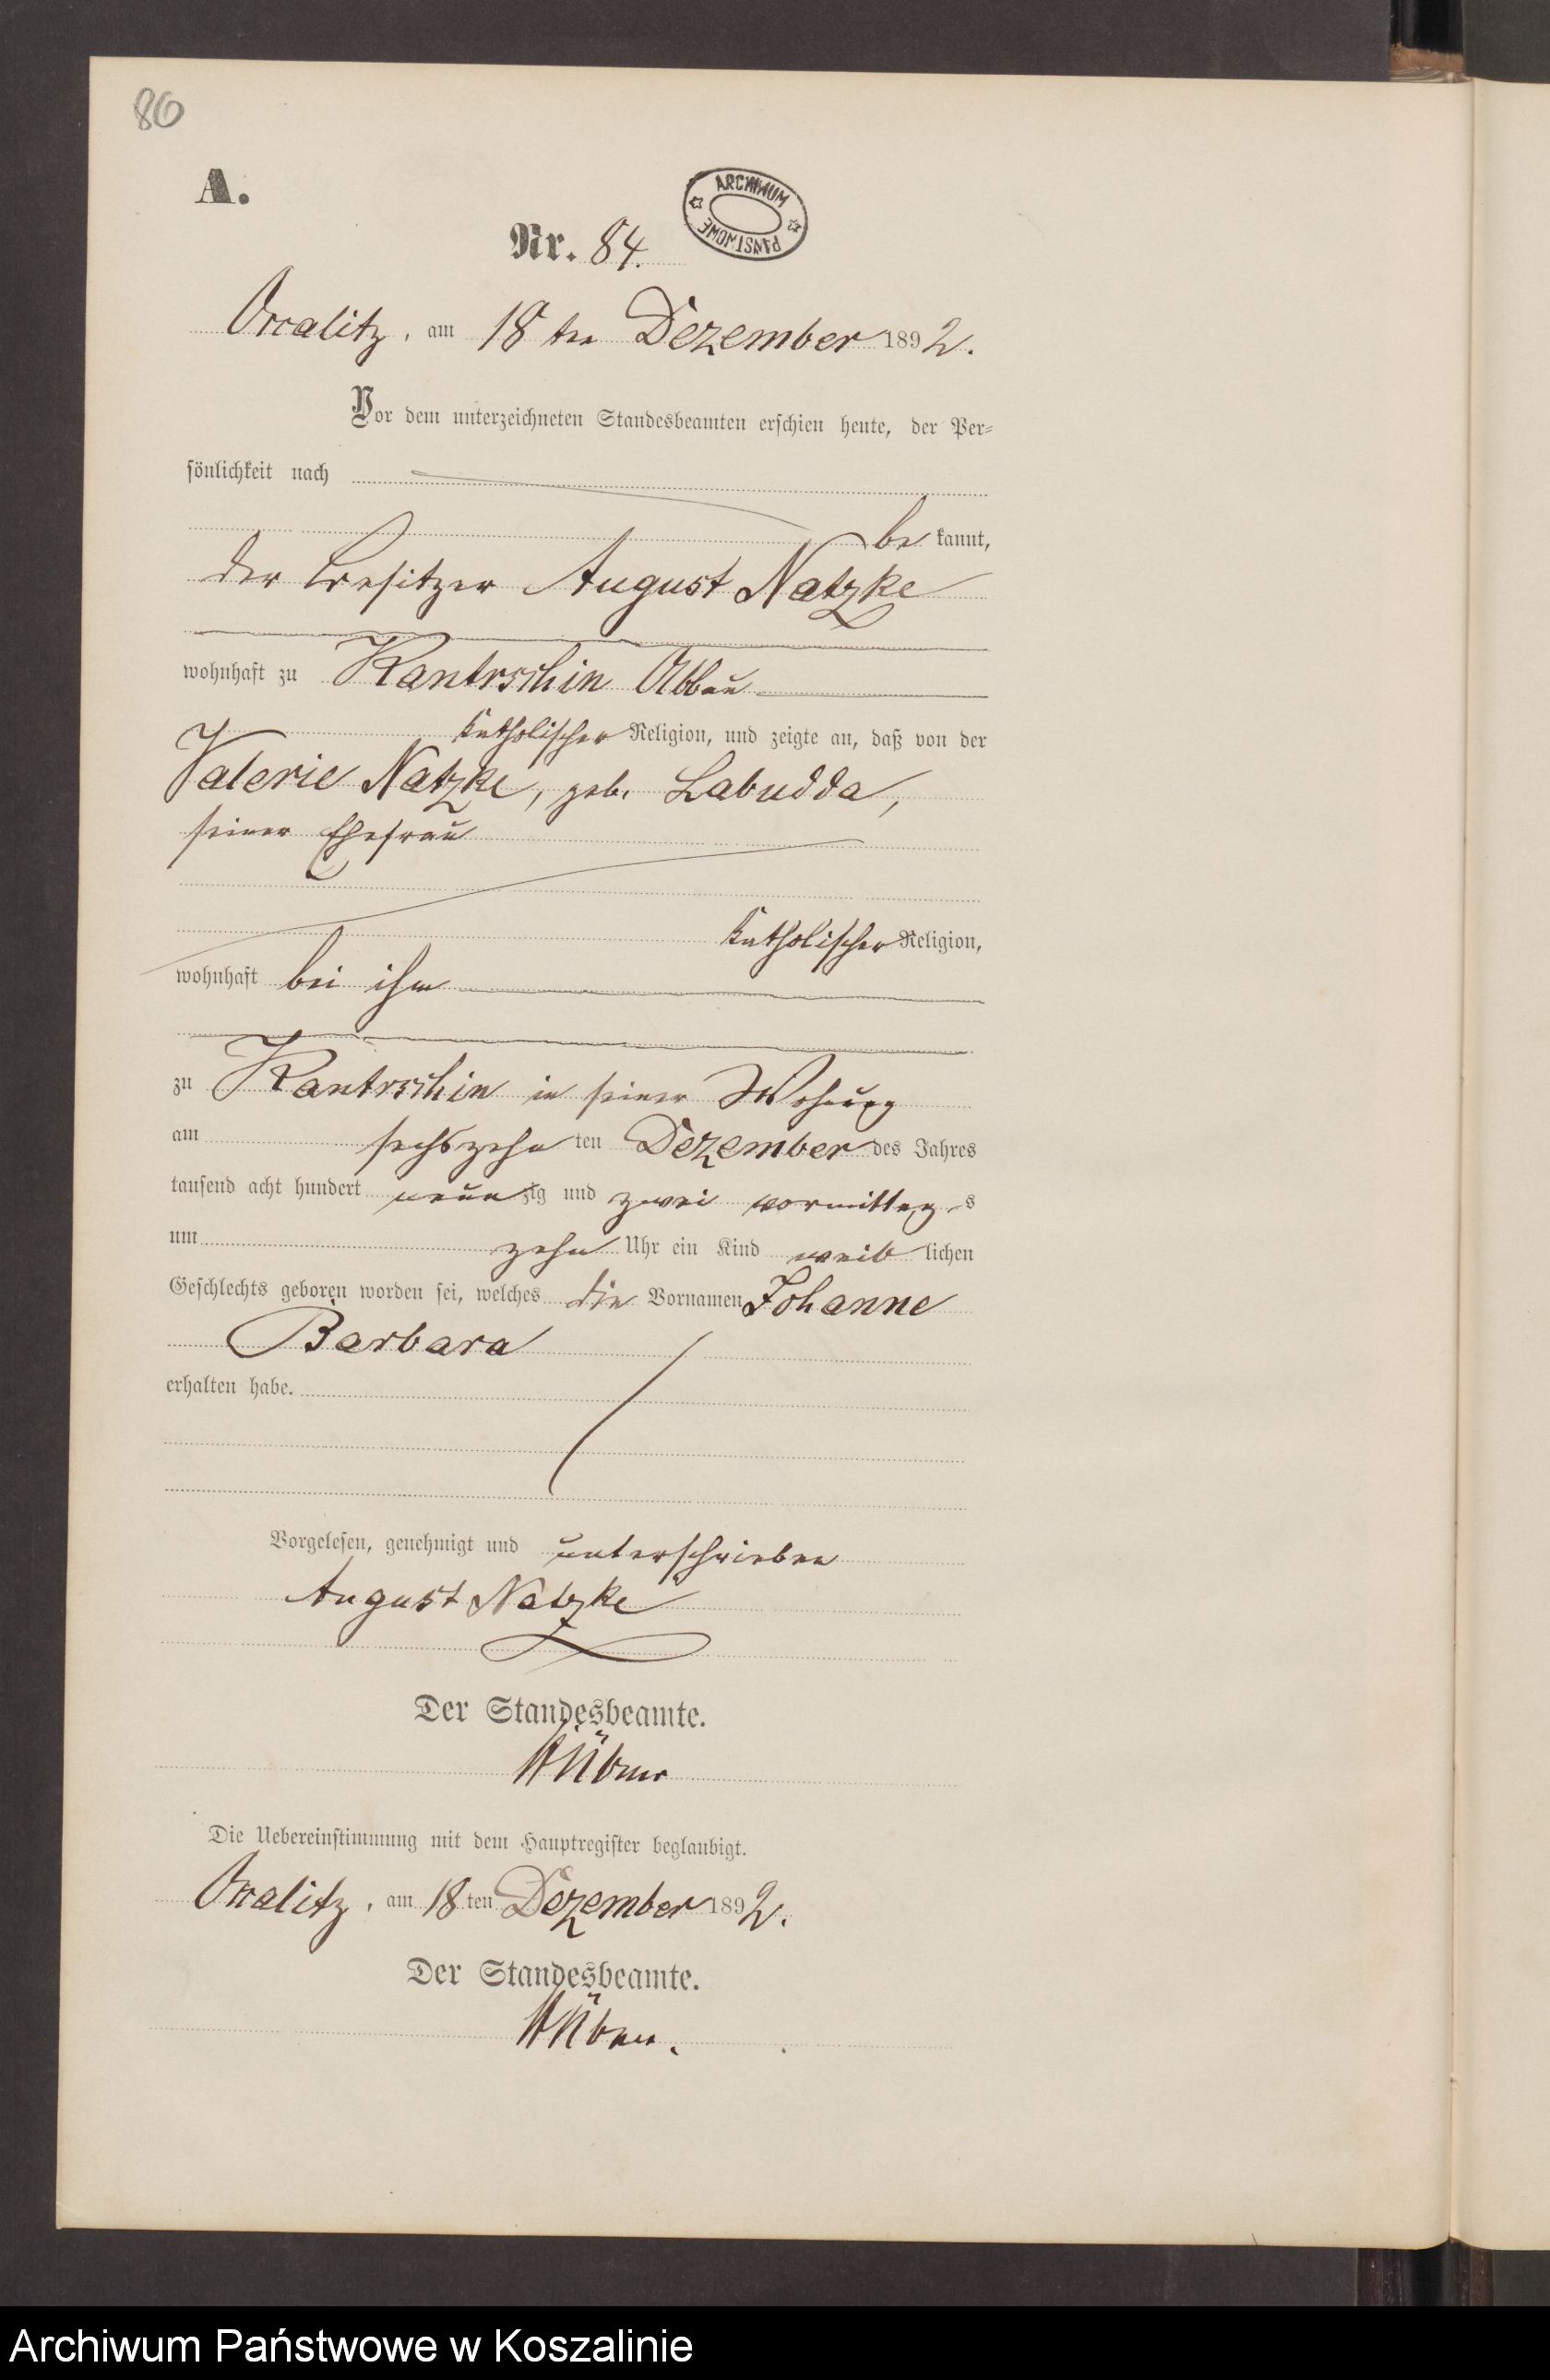 80
A.
ARCHIWUM PAŃSTWOWE
Nr. 84.
Occalitz, am 18 ten Dezember 1892.
Vor dem unterzeichneten Standesbeamten erschien heute, der Per-
sönlichkeit nach
bekannt,
der Besitzer August Natzke
wohnhaft zu Kantrschin Abbau
katholischer Religion, und zeigte an, daß von der
Valerie Natzke, geb. Labudda,
seiner Ehefrau
katholischer Religion,
wohnhaft bei ihm
zu Kantrschin in seiner Wohnung
am sechszehn ten Dezember des Jahres
tausend acht hundert neunzig und zwei vormittags
um zehn Uhr ein Kind weiblichen
Geschlechts geboren worden sei, welches die Vornamen Johanne
Barbara
erhalten habe.
Vorgelesen, genehmigt und unterschrieben
August Natzke
Der Standesbeamte.
Die Uebereinstimmung mit dem Hauptregister beglaubigt.
Occalitz, am 18 ten Dezember 1892.
Der Standesbeamte.
Archiwum Państwowe w Koszalinie